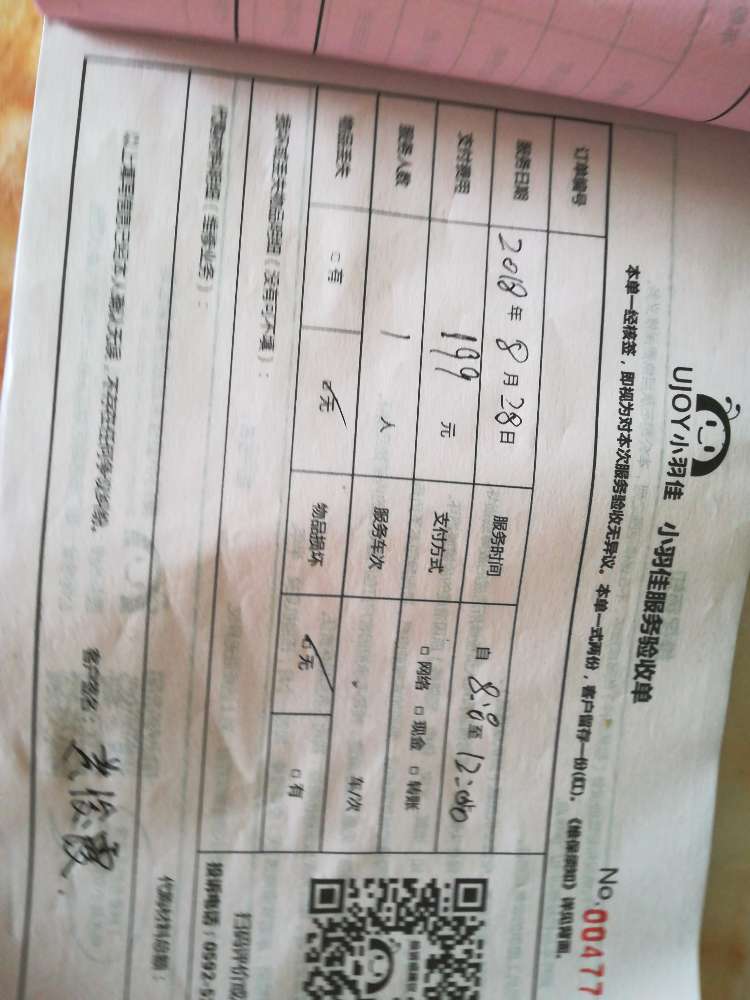 UJOY小羽佳 小羽佳服务验收单
No.00477
本单一经核签，即视为对本次服务验收无异议。本单一式两份，客户留存一份(红)。《维保须知》详见背面。
订单编号
服务日期 2018年8月28日 服务时间 自8:0至12:00
支付费用 199元 支付方式 □网络 □现金 □转账
服务人数 1人 服务车次 车/次
物品丢失 □有 ☑无 物品损坏 ☑无 □有
损坏或丢失物品明细（没有可不填）：
扫码评价或
投诉电话：0592-5
（维修业务）：
代购材料总额：
以上填写信息已经本人确认无误，不存在任何争议纠纷。
客户签名：黄